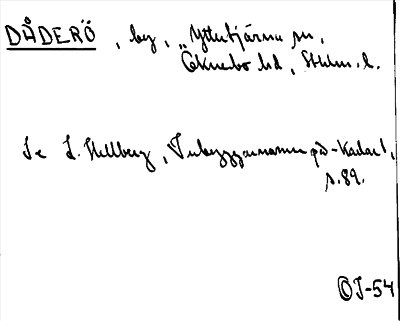 DÅDERÖ, by, Ytterjärna sn,
Öknebo hd, Sthlm. l.
Se L. Hellberg, Inbyggarnamn på -karlar,
s. 89.
OJ-54